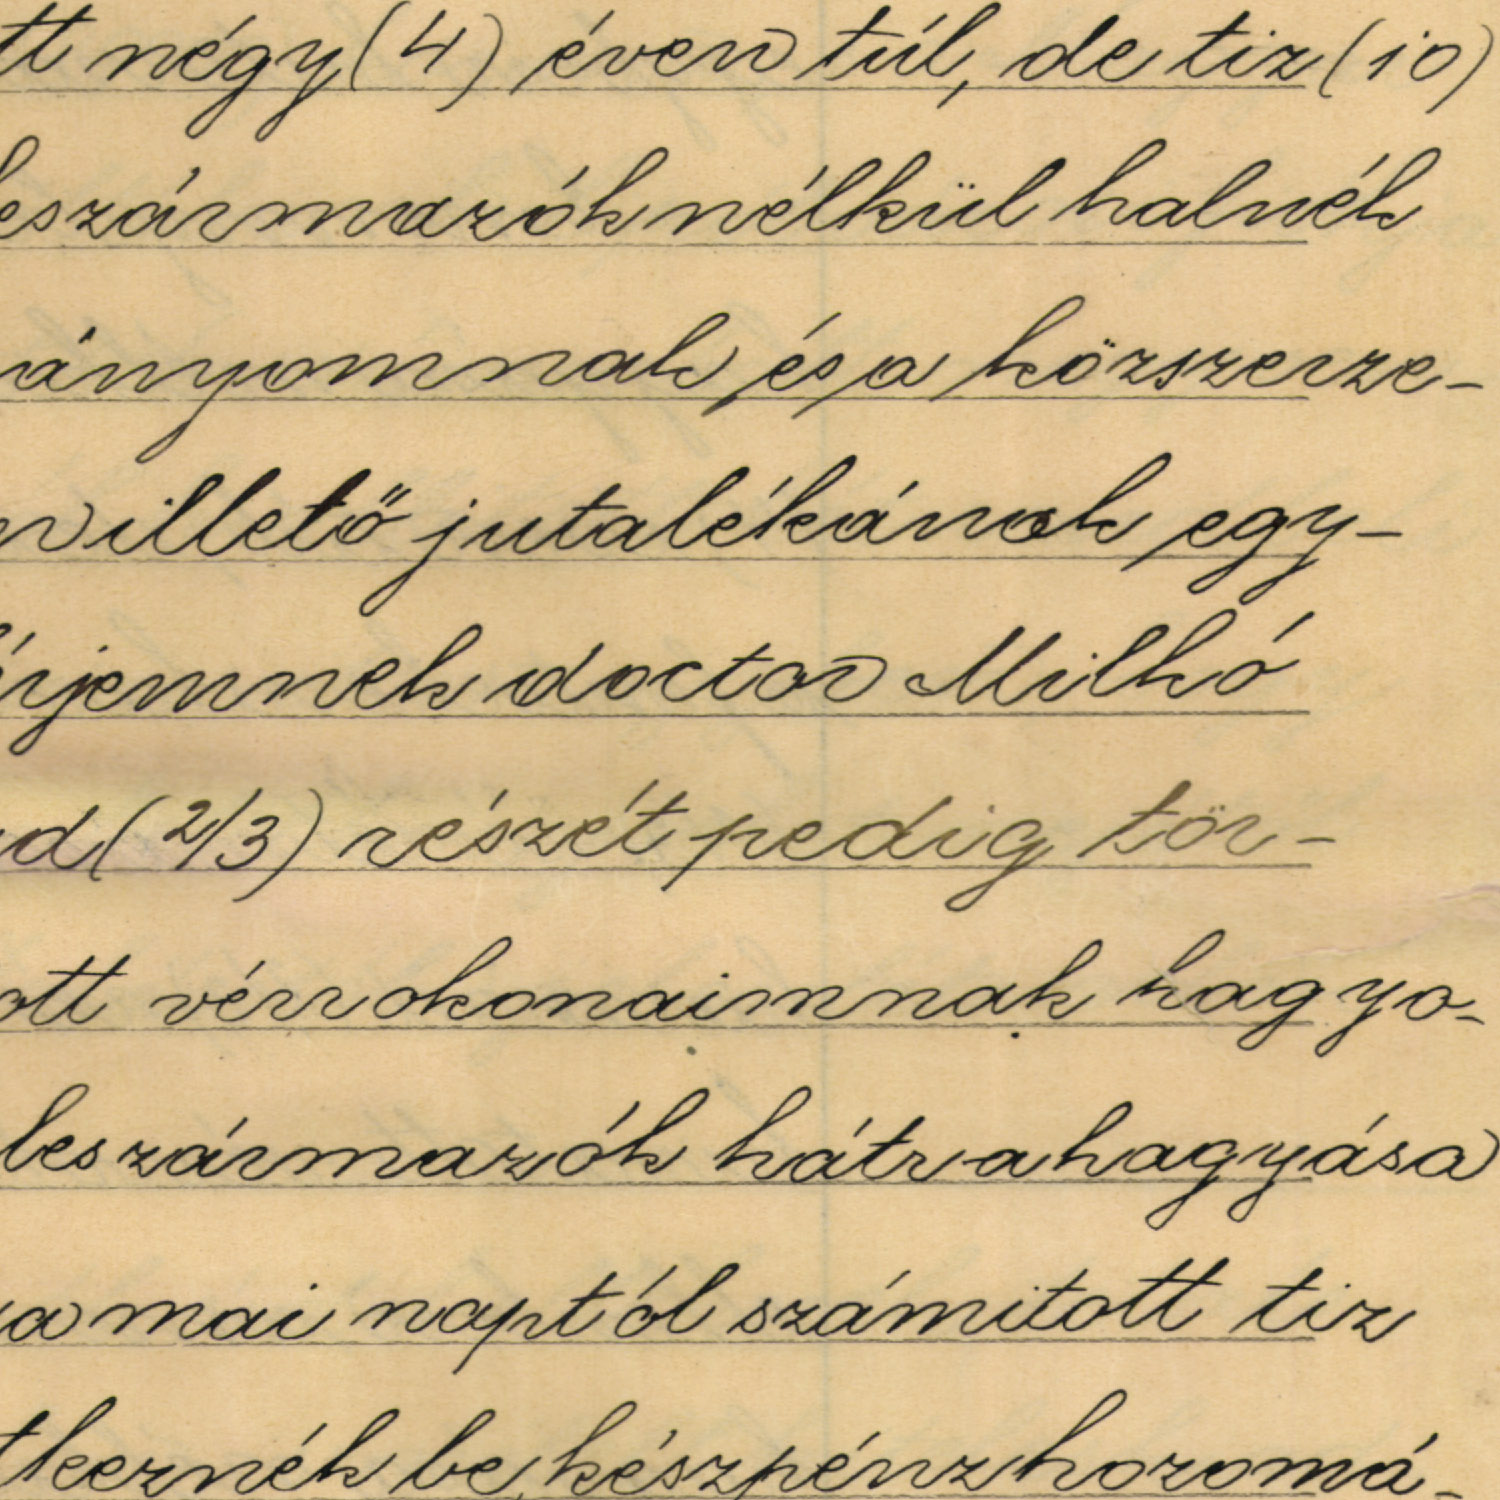 tt négy (4) éven túl, de tiz (10)
leszármazók nélkül halnék
ányomnak és a közszerze-
n illető jutalékának egy-
érjemnek doctor Milkó
d (2/3) részét pedig tör-
ott vérrokonaimnak hagyo-
leszármazók hátrahagyása
a mai naptól számitott tiz
tkeznék be, készpénzhozomá-